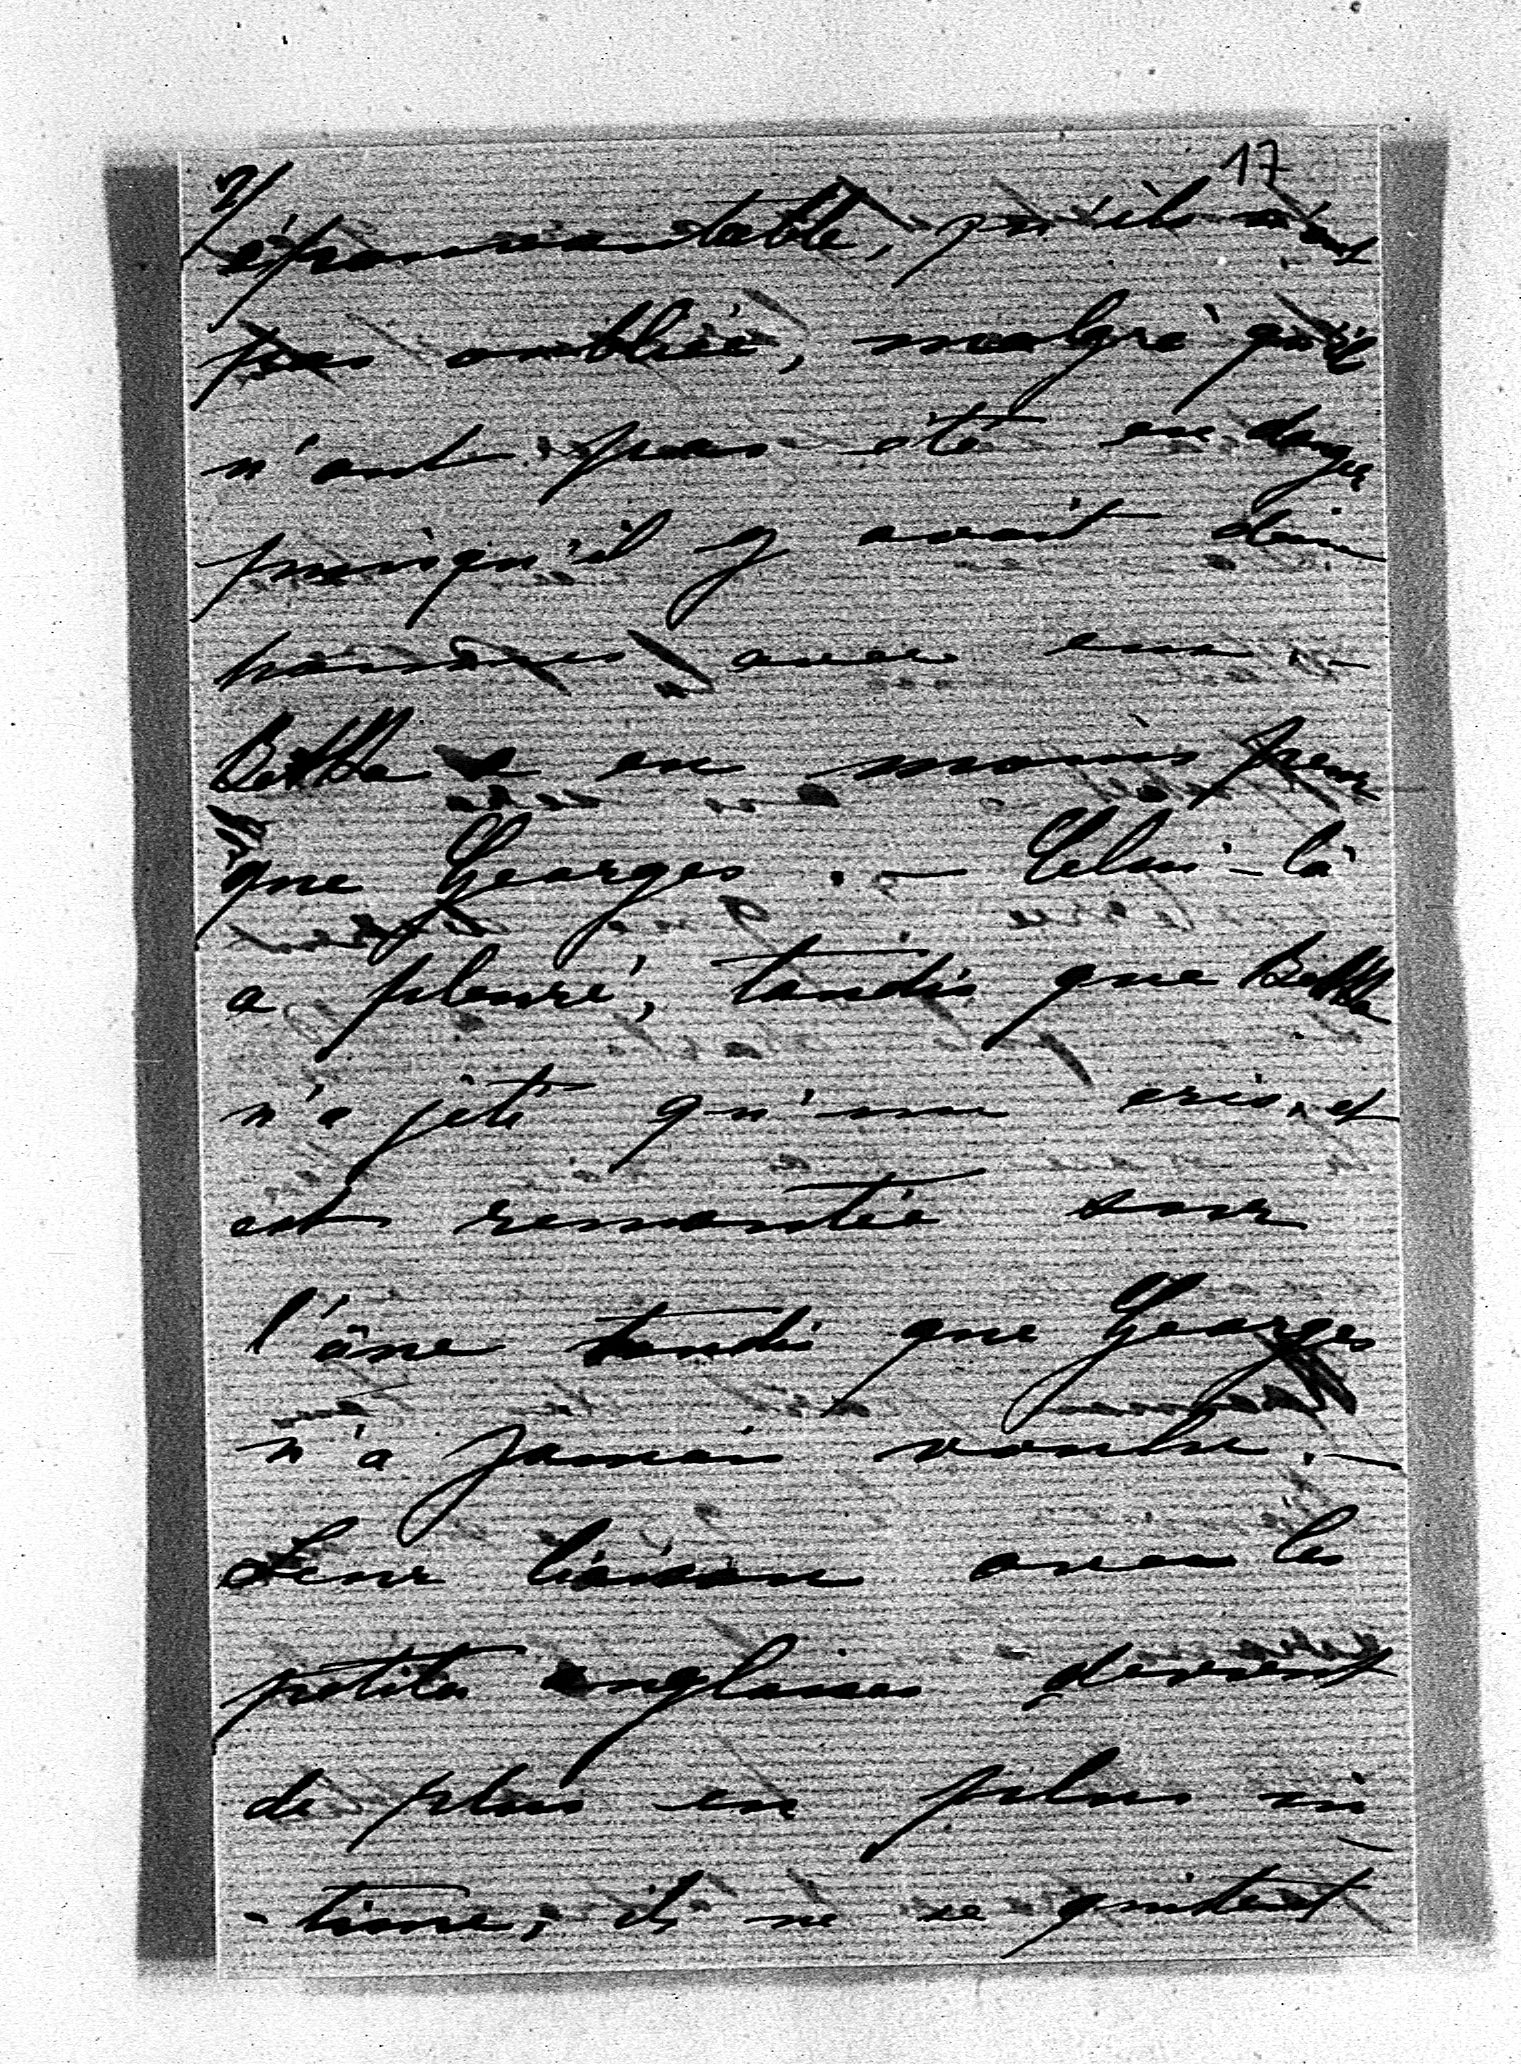 2/ 17
épouvantable, qu'ils n'ont
pas oubliée, malgré qu'ils
n'ont pas été en danger
puisqu'il y avait deux
hommes avec eux. -
Bebbe a eu moins peur
que Georges. - Celui-là
a pleuré, tandis que Bebbe
n'a jêté qu'un cris, et
est remontée sur
l'âne tandis que Georges
n'a jamais voulu. -
Leur liaison avec les
petites anglaises devient
de plus en plus in
- time, ils ne se quittent